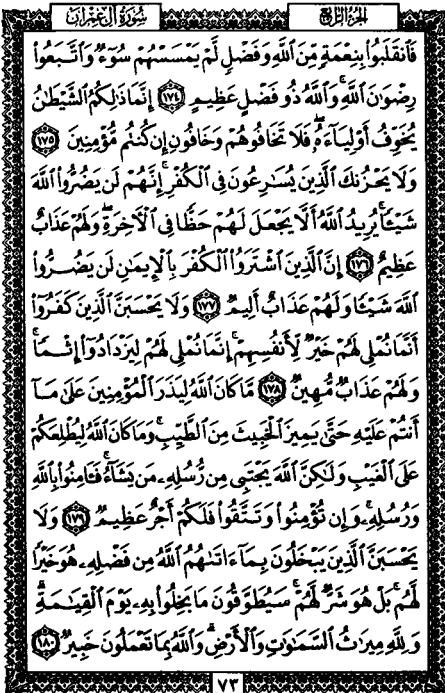 الجزء الرابع
سورة آل عمران
فَٱنقَلَبُوا۟ بِنِعْمَةٍ مِّنَ ٱللَّهِ وَفَضْلٍ لَّمْ يَمْسَسْهُمْ سُوٓءٌ وَٱتَّبَعُوا۟
رِضْوَٰنَ ٱللَّهِ ۗ وَٱللَّهُ ذُو فَضْلٍ عَظِيمٍ ١٧٤ إِنَّمَا ذَٰلِكُمُ ٱلشَّيْطَٰنُ
يُخَوِّفُ أَوْلِيَآءَهُۥ فَلَا تَخَافُوهُمْ وَخَافُونِ إِن كُنتُم مُّؤْمِنِينَ ١٧٥
وَلَا يَحْزُنكَ ٱلَّذِينَ يُسَٰرِعُونَ فِى ٱلْكُفْرِ ۚ إِنَّهُمْ لَن يَضُرُّوا۟ ٱللَّهَ
شَيْـًٔا ۗ يُرِيدُ ٱللَّهُ أَلَّا يَجْعَلَ لَهُمْ حَظًّا فِى ٱلْـَٔاخِرَةِ ۖ وَلَهُمْ عَذَابٌ
عَظِيمٌ ١٧٦ إِنَّ ٱلَّذِينَ ٱشْتَرَوُا۟ ٱلْكُفْرَ بِٱلْإِيمَٰنِ لَن يَضُرُّوا۟
ٱللَّهَ شَيْـًٔا وَلَهُمْ عَذَابٌ أَلِيمٌ ١٧٧ وَلَا يَحْسَبَنَّ ٱلَّذِينَ كَفَرُوٓا۟
أَنَّمَا نُمْلِى لَهُمْ خَيْرٌ لِّأَنفُسِهِمْ ۚ إِنَّمَا نُمْلِى لَهُمْ لِيَزْدَادُوٓا۟ إِثْمًا ۚ
وَلَهُمْ عَذَابٌ مُّهِينٌ ١٧٨ مَّا كَانَ ٱللَّهُ لِيَذَرَ ٱلْمُؤْمِنِينَ عَلَىٰ مَآ
أَنتُمْ عَلَيْهِ حَتَّىٰ يَمِيزَ ٱلْخَبِيثَ مِنَ ٱلطَّيِّبِ ۗ وَمَا كَانَ ٱللَّهُ لِيُطْلِعَكُمْ
عَلَى ٱلْغَيْبِ وَلَٰكِنَّ ٱللَّهَ يَجْتَبِى مِن رُّسُلِهِۦ مَن يَشَآءُ ۖ فَـَٔامِنُوا۟ بِٱللَّهِ
وَرُسُلِهِۦ ۚ وَإِن تُؤْمِنُوا۟ وَتَتَّقُوا۟ فَلَكُمْ أَجْرٌ عَظِيمٌ ١٧٩ وَلَا
يَحْسَبَنَّ ٱلَّذِينَ يَبْخَلُونَ بِمَآ ءَاتَىٰهُمُ ٱللَّهُ مِن فَضْلِهِۦ هُوَ خَيْرًا
لَّهُم ۖ بَلْ هُوَ شَرٌّ لَّهُمْ ۖ سَيُطَوَّقُونَ مَا بَخِلُوا۟ بِهِۦ يَوْمَ ٱلْقِيَٰمَةِ ۗ
وَلِلَّهِ مِيرَٰثُ ٱلسَّمَٰوَٰتِ وَٱلْأَرْضِ ۗ وَٱللَّهُ بِمَا تَعْمَلُونَ خَبِيرٌ ١٨٠
٧٣